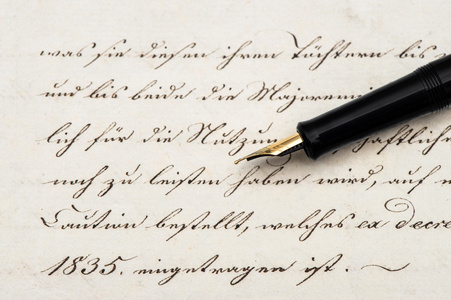 was sie diesen ihren Töchtern bis
und bis beide die Majorenni
lich für die Nutzun haftliche
noch zu leisten haben wird, auf
Caution bestellt, welches ex decre
1835. eingetragen ist.